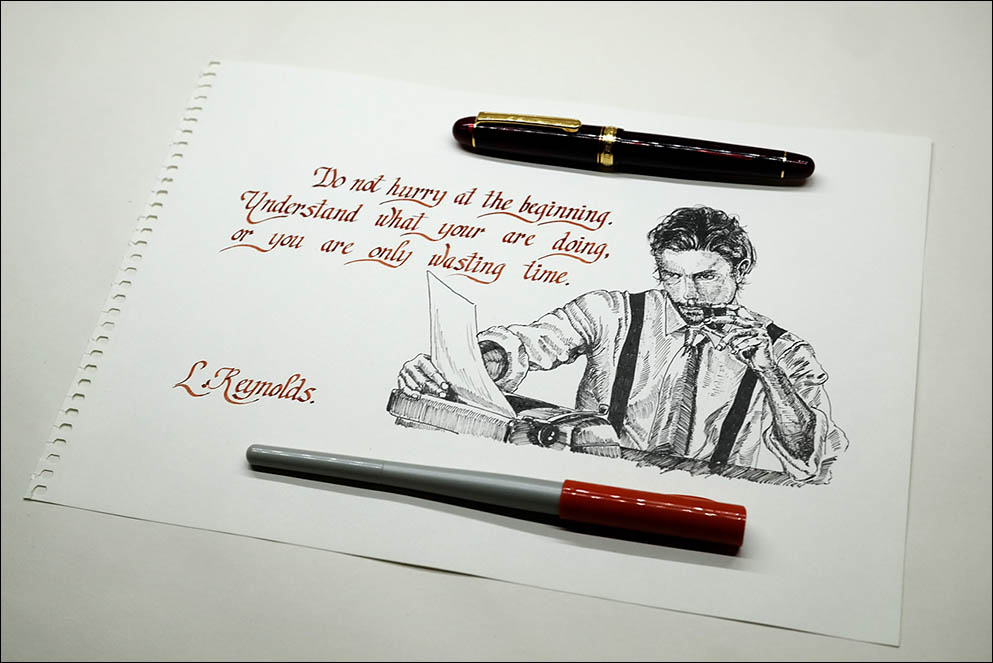 Do not hurry at the beginning.
Understand what your are doing,
or you are only wasting time.
L. Reynolds.